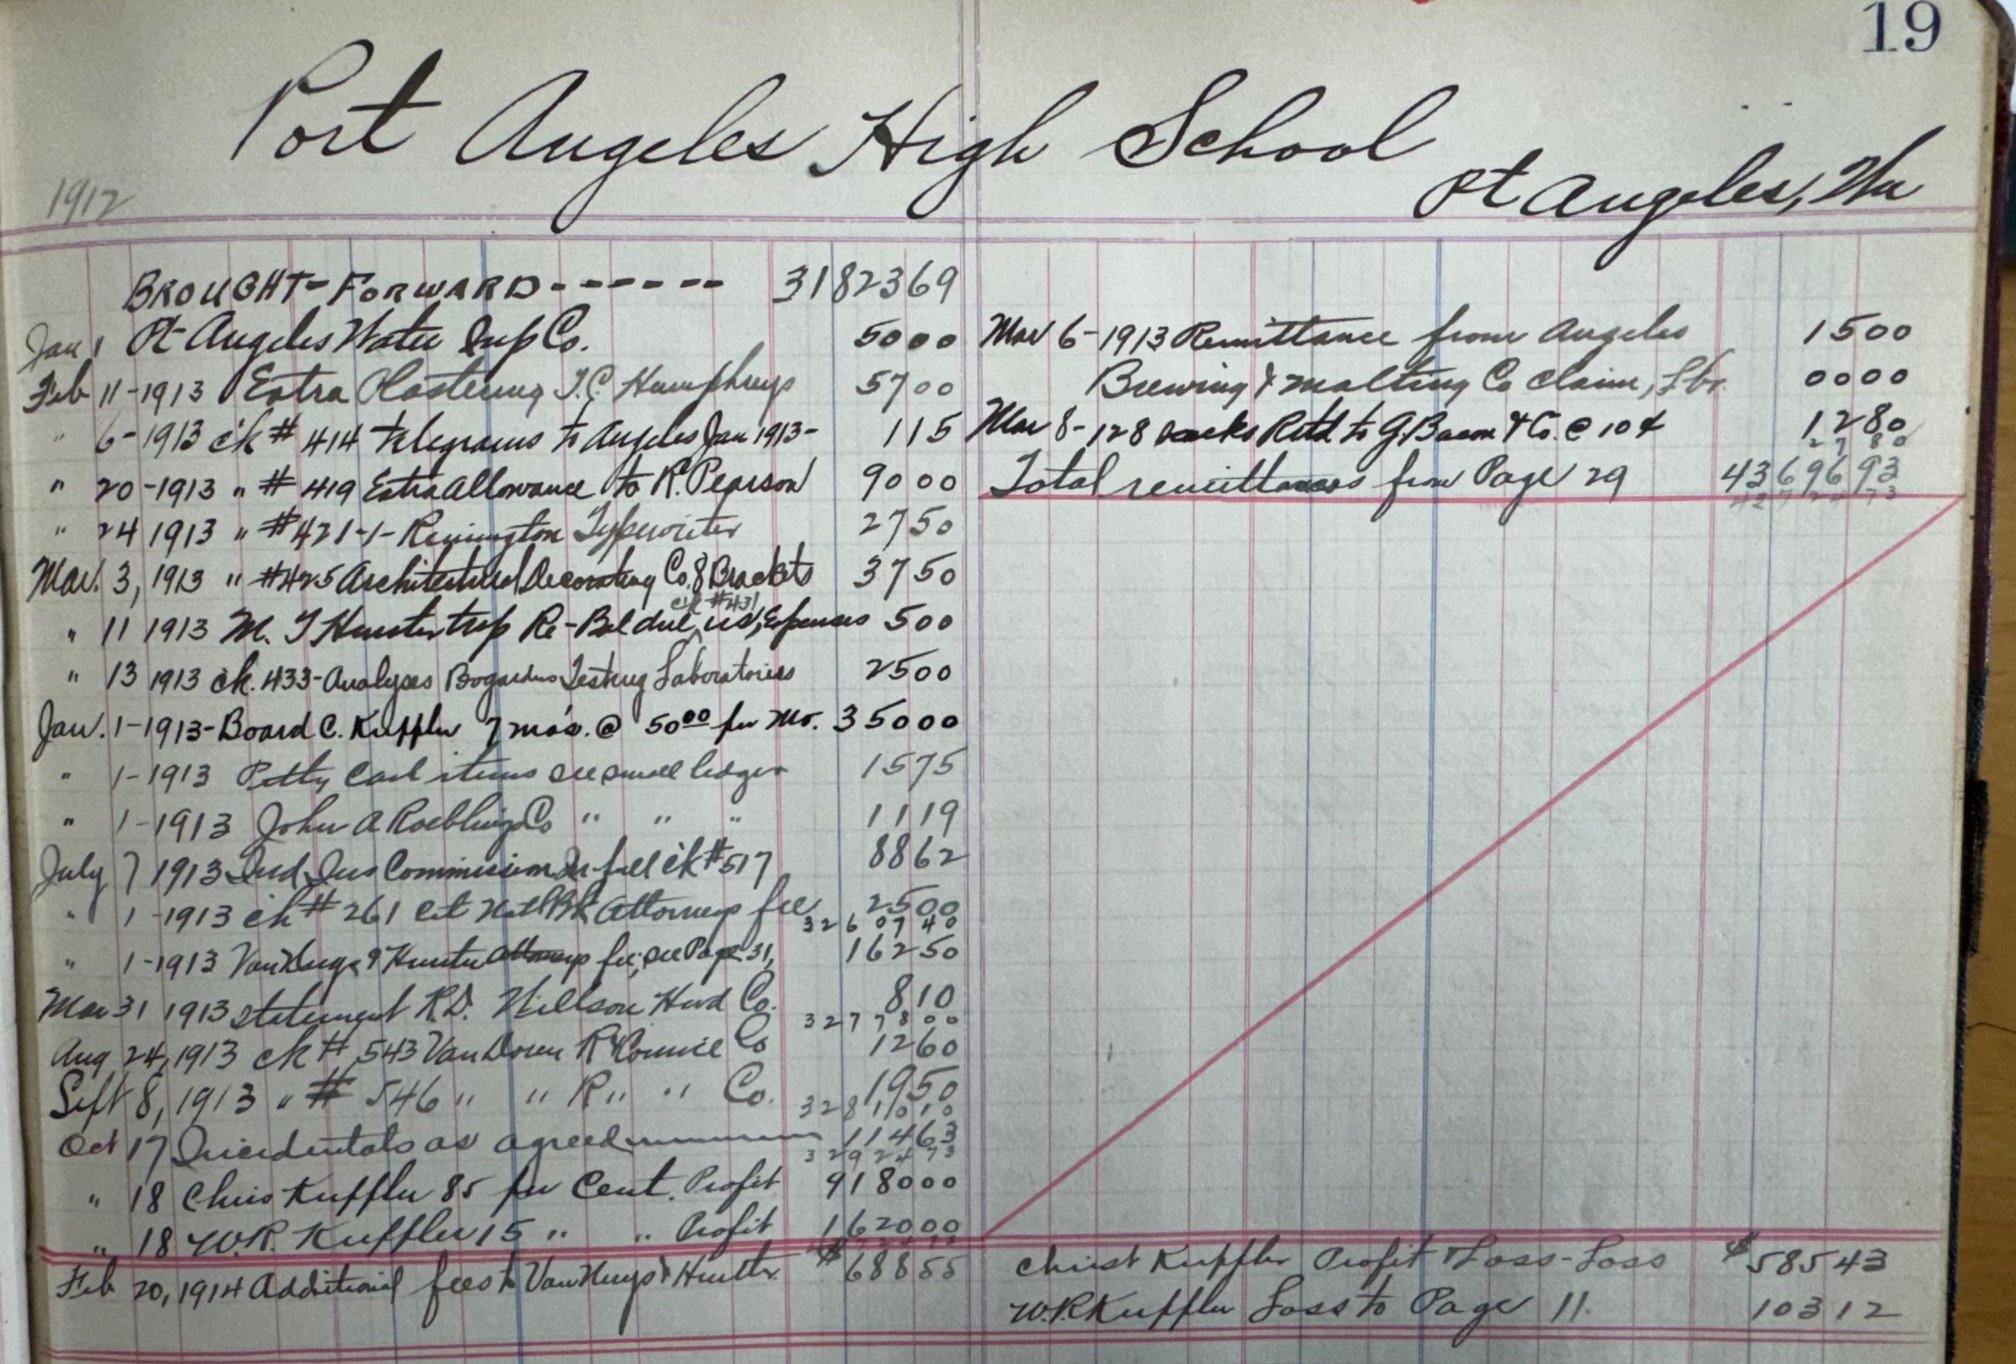 19
Port Angeles High School
Pt Angeles, Wn
1912
BROUGHT-FORWARD------ 3182369
Jan 1 Pt Angeles Water Sup Co. 5000
Feb 11-1913 Extra Plastering T.C. Humphreys 5700
" 6-1913 ck # 414 telegrams to Angeles Jan 1913- 115
" 20-1913 " # 419 Extra Allowance to R. Pearson 9000
" 24 1913 " #421-1-Remington Typewriter 2750
Mar. 3, 1913 " #425 Architectural Decorating Co. 8 Brackets 3750
ck #431
" 11 1913 M. T Hunter trip Re-Bal due us, Expenses 500
" 13 1913 ck. 433-Analyses Bogardus Testing Laboratories 2500
Jan. 1-1913-Board C. Kuppler 7 mo's. @ 5000 per Mo. 35000
" 1-1913 Petty Cash items see small ledger 1575
" 1-1913 John A Roeblings Co " " " 1119
July 7 1913 Ind Ins Commission In full ck #517 8862
" 1-1913 ck # 261 Cit Natl Bk Attorneys fee 2500
3260740
" 1-1913 Van Huys & Hunter Attorneys fee, see Page 31, 16250
Mar 31 1913 statement R.D. Nillson Hwd Co. 810
3277800
Aug 24, 1913 ck # 543 Van Doren R Co 1260
Sept 8, 1913 " # 546 " " R " " Co. 1950
3281010
Oct 17 Incidentals as agreed 11463
3292473
" 18 Chris Kuppler 85 per Cent. Profit 918000
" 18 W.R. Kuppler 15 " " Profit 162000
Feb 20, 1914 Additional fees to Van Huys & Hunter $68855
Mar 6-1913 Remittance from Angeles 1500
Brewing & Malting Co claim, Lbr. 0000
Mar 8-128 sacks Retd to G. Bacon & Co. @ 10¢ 1280
2780
Total remittances from Page 29 4369693
Christ Kuppler Profit & Loss-Loss $58543
W.R. Kuppler Loss to Page 11. 10312